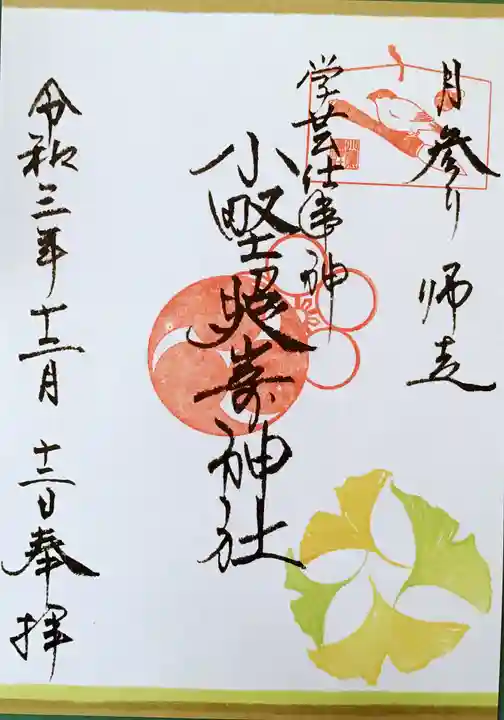 月参り 師走
学芸仕事神
小野照崎神社
令和三年 十二月 十二日 奉拝